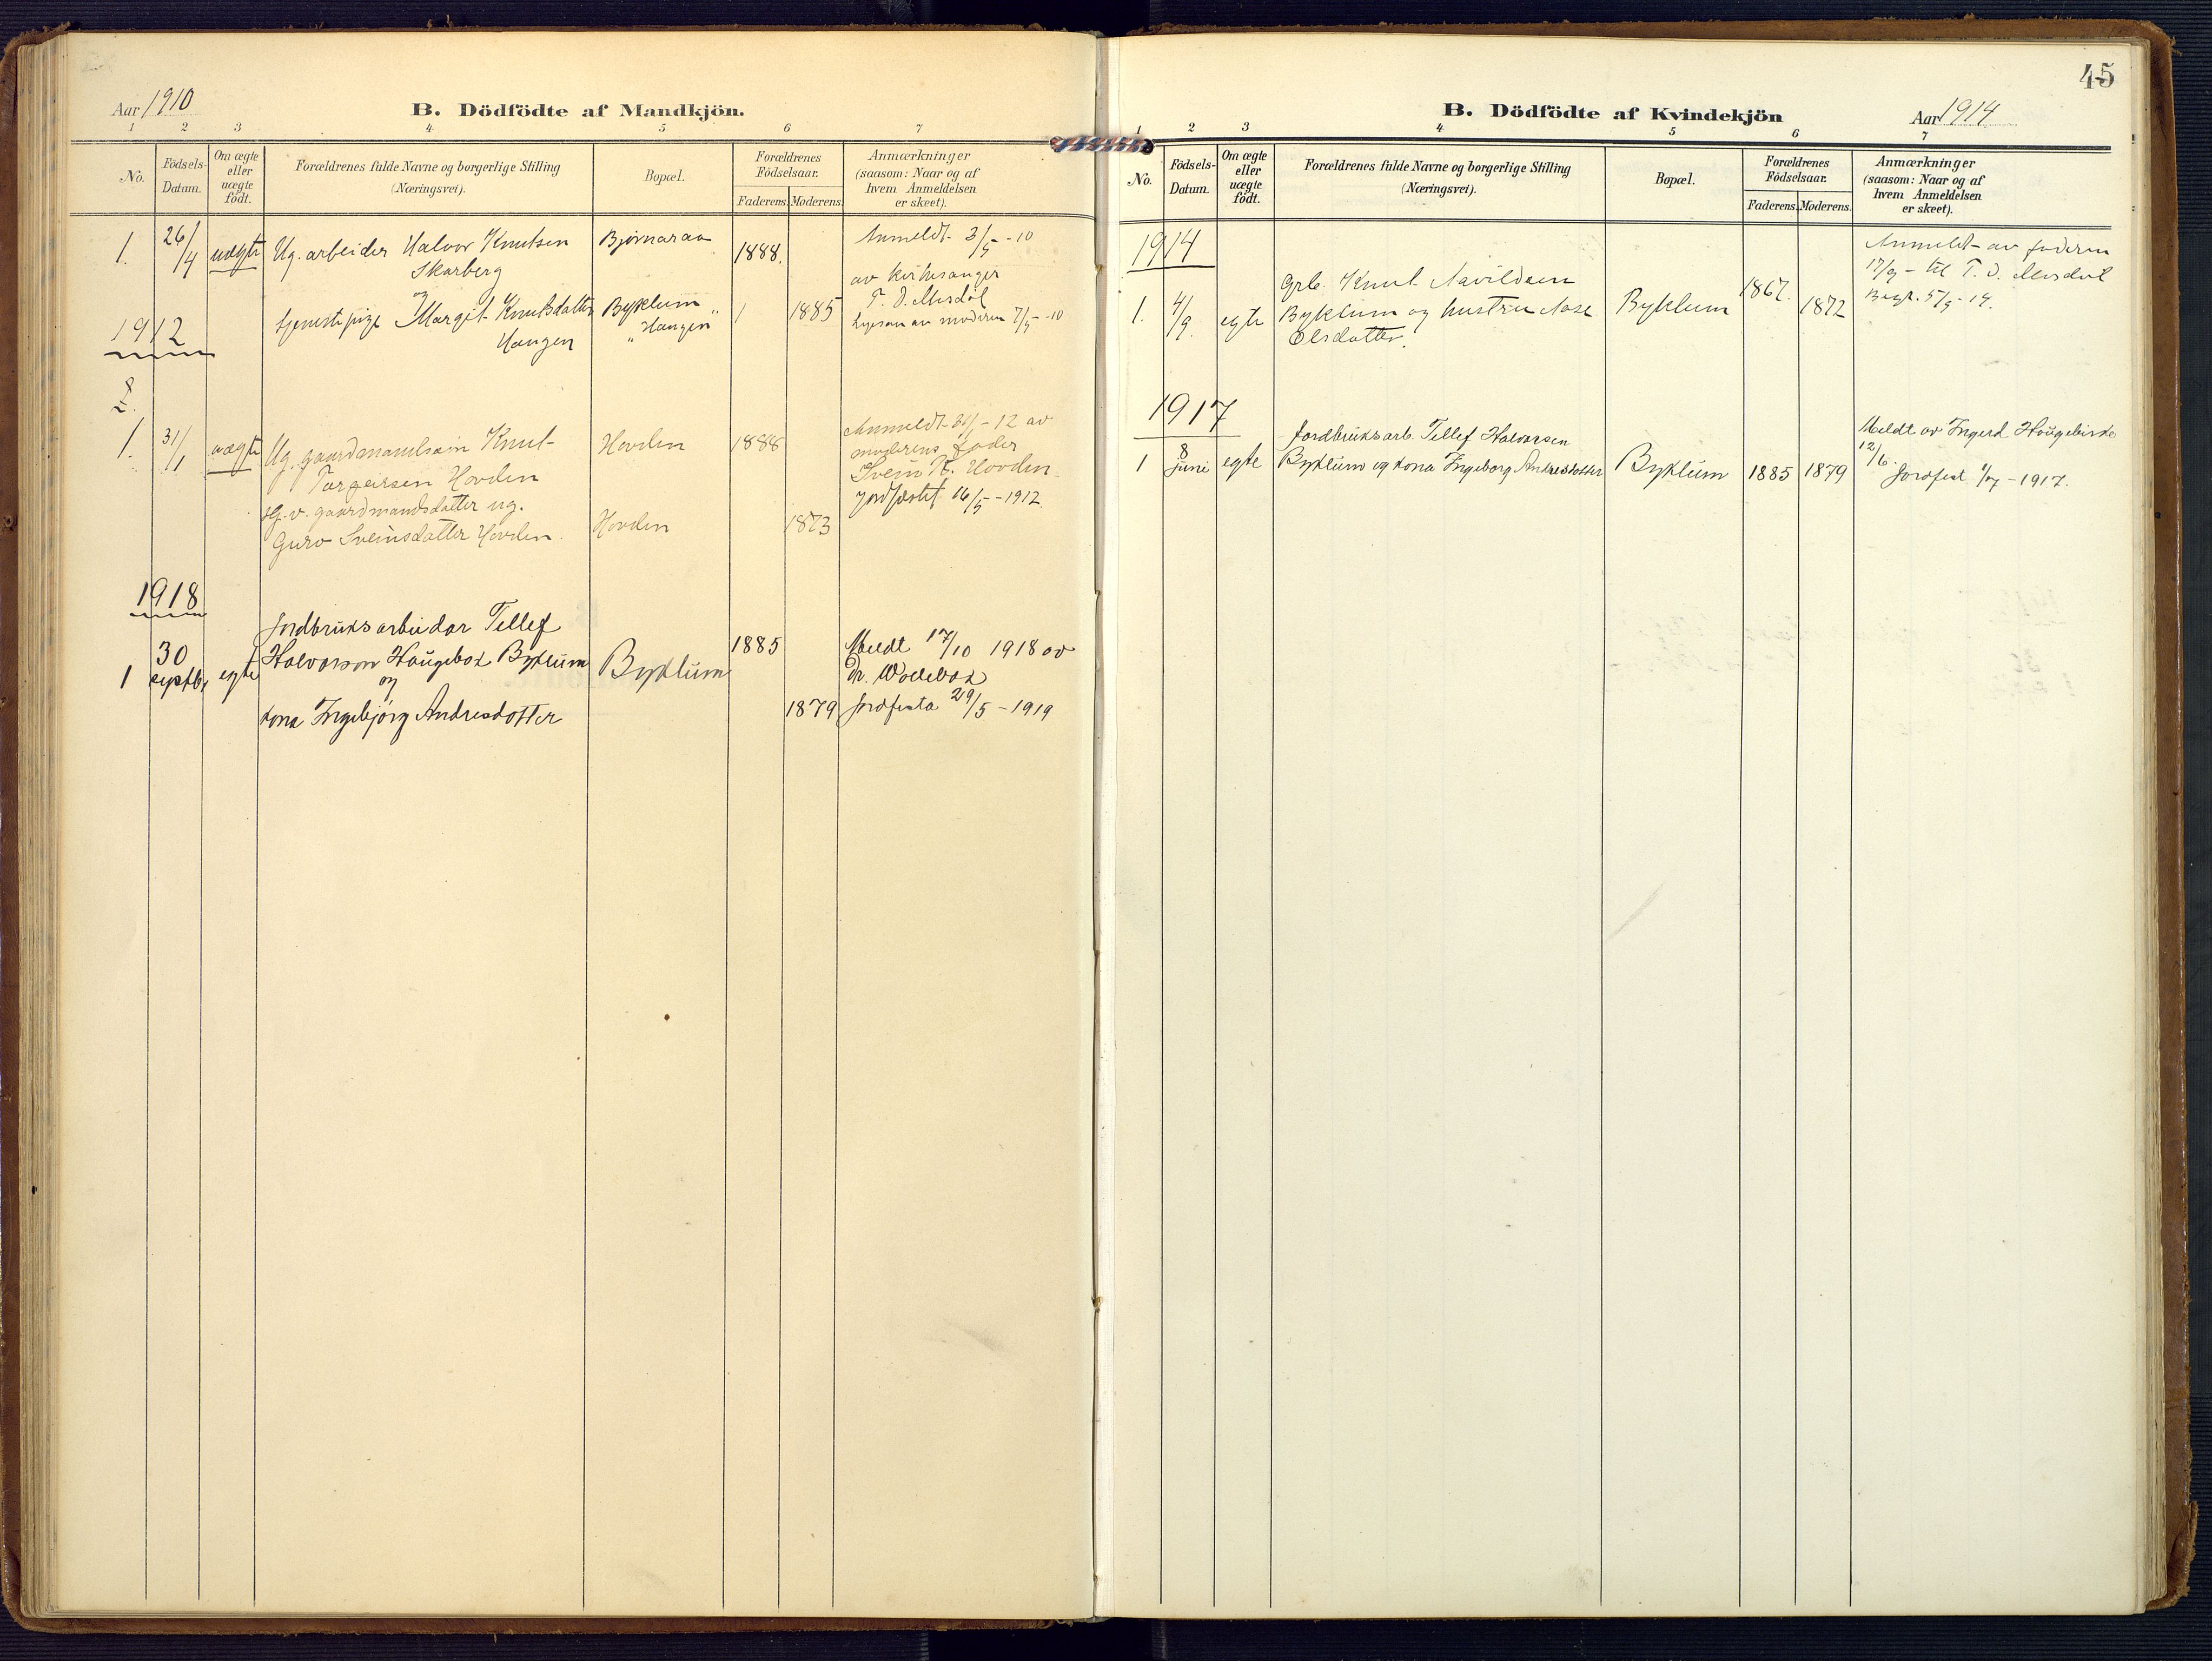 Aar 1910
B. Dödfödte af Mandkjön.
1 2 3 4 5 6 7
No.
Födsels-Datum.
Om ægte eller uægte födt.
Forældrenes fulde Navne og borgerlige Stilling
(Næringsvei).
Bopæl.
Forældrenes Födselsaar.
Faderens. Moderens.
Anmærkninger
(saasom: Naar og af
hvem Anmeldelsen
er skeet).
1. 26/4 uægte Ug. arbeider Halvor Knutsen Bjørnaraa 1888. Anmeldt 3/5 -10
Skarberg av kirkesanger
og T. O. Mosdøl
tjenestepige Margit Knutsdatter Byklum 1885 moderen 7/5 -10
Haugen "Haugen"
1912
1. 31/1 uægte Ug. gaardmandssøn Knut Hovden 1888 Anmeldt 31/1 - 12 av
Torgeirsen Hovden moderens fader
Svein K. Hovden.
gaardmandsdatter ug. Jordfæstet 16/5 - 1912.
Guro Sveinsdatter Hovden. Hovden 1873
1918
1 30 septbr egte Jordbruksarbeidar Tellef
Halvorson Haugebox Byklum Byklum 1885 Meldt 17/10 1918 av
og Dr. Wollebox
kona Ingebjørg Andresdotter 1879 Jordfesta 29/5 - 1919
45
B. Dödfödte af Kvindekjön
Aar 1914
1 2 3 4 5 6 7
No.
Födsels-Datum.
Om ægte eller uægte födt.
Forældrenes fulde Navne og borgerlige Stilling
(Næringsvei).
Bopæl.
Forældrenes Födselsaar.
Faderens. Moderens.
Anmærkninger
(saasom: Naar og af
hvem Anmeldelsen
er skeet).
1914
Anmeldt av faderen
17/9 - til T. O. Mosdøl
1. 4/9 egte Grb. Knut Navildsen Byklum 1867. 1872 Begr. 5/9 - 14.
Byklum og hustru Aase
Olsdatter.
1917
1 8 juni egte Jordbruksarb. Tellef Halvorsen
Byklum og kona Ingeborg Andresdotter Byklum 1885 1879 Meldt av Ingerd Haugebirke
12/6.
Jordfest 1/7 - 1917.